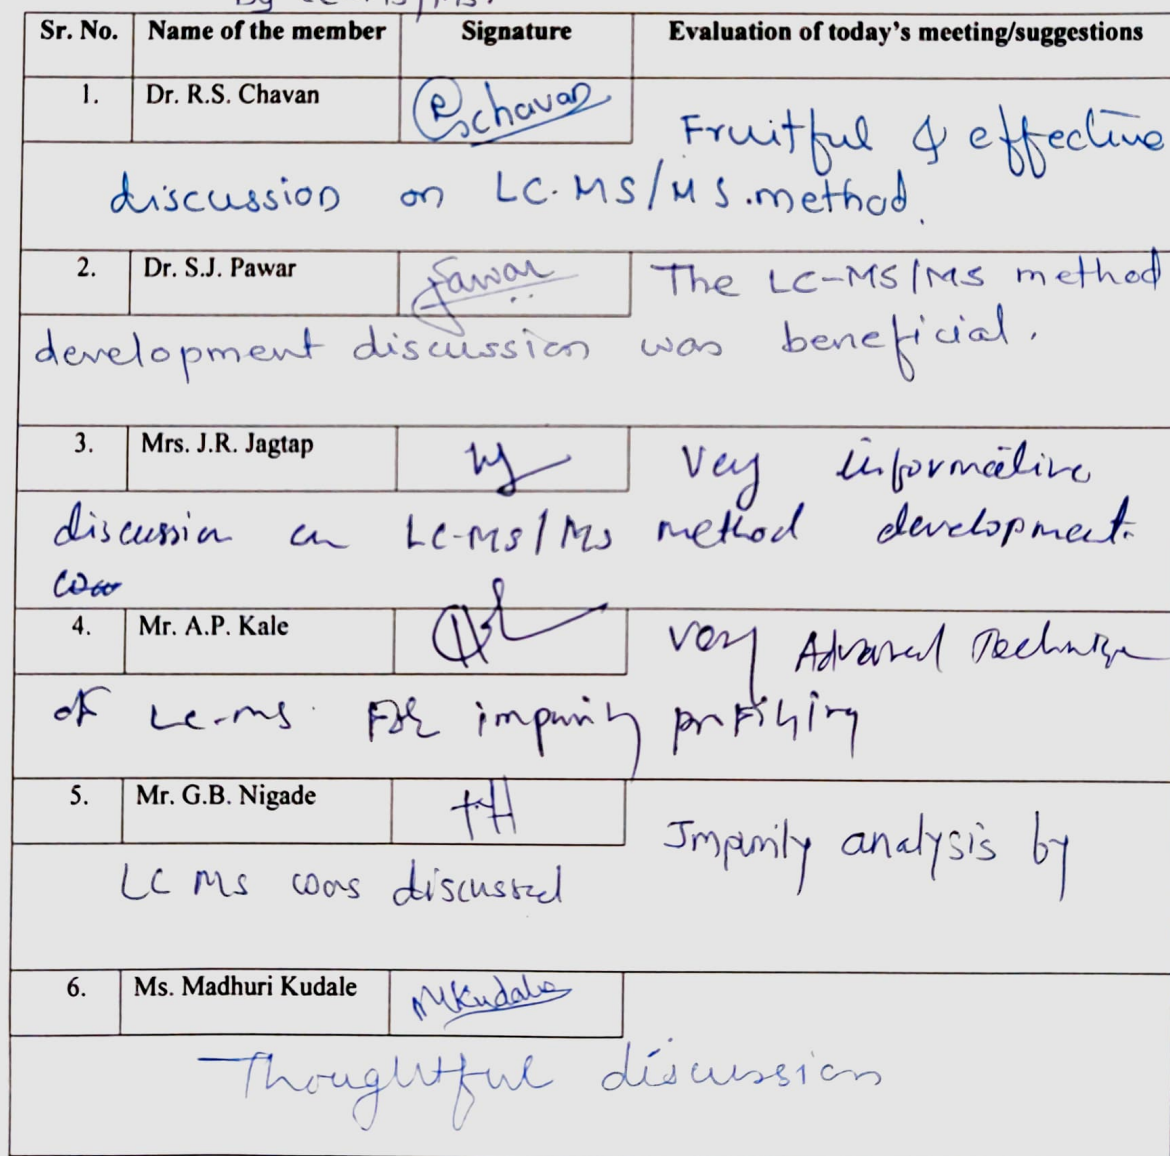 By LC-MS/MS.
Sr. No. Name of the member Signature Evaluation of today's meeting/suggestions
1. Dr. R.S. Chavan RSchavan Fruitful & effective
discussion on LC-MS/MS.method.
2. Dr. S.J. Pawar SPawar The LC-MS/MS method
development discussion was beneficial.
3. Mrs. J.R. Jagtap Very informative
discussion on LC-MS/MS method development.
4. Mr. A.P. Kale Very Advanced Technique
of LC-MS. For impurity profiling
5. Mr. G.B. Nigade Impurity analysis by
LC MS was discussed
6. Ms. Madhuri Kudale MKudale
Thoughtful discussion